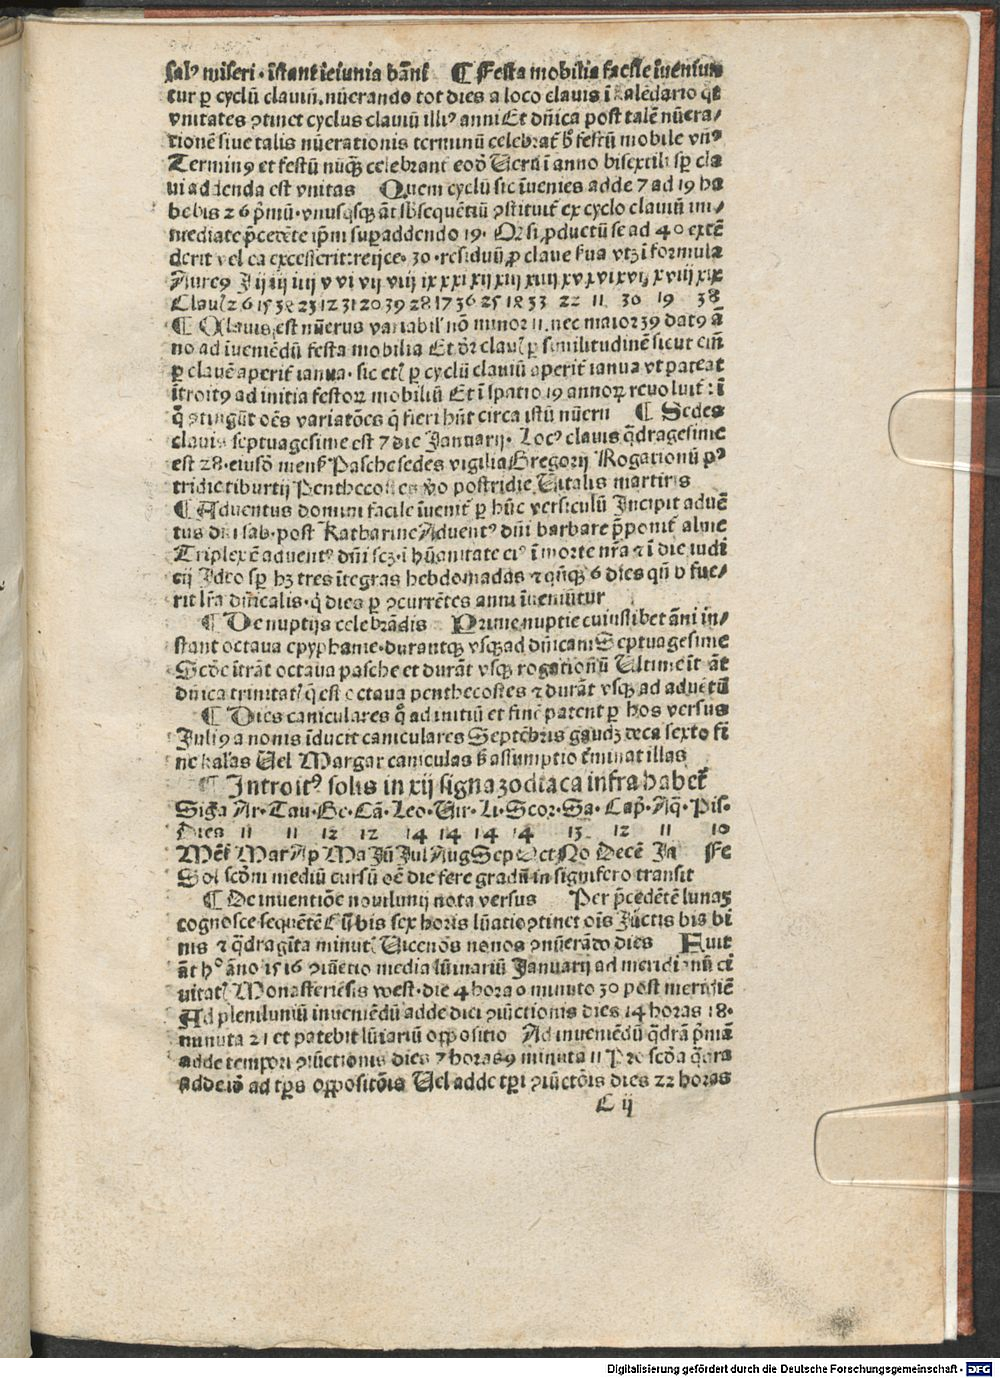 salꝰ miseri · īstant ieiunia dāni ¶ Festa mobilia facile īueniun
tur ꝑ cyclū clauiū. nūerando tot dies a loco clauis ī kalēdario qͭ
vnitates ↄtinet cyclus clauiū illiꝰ anni Et dn̄ica post talē nūera⸗
tionē siue talis nūerationis terminū celebrat̄ h̄ festū mobile vnꝰ
Terminꝰ et festū nūqȝ celebrant̄ eod̄ Uerū ī anno bisextili sꝑ cla
ui addenda est vnitas Quem cyclū sic īuenies adde 7 ad 19 ha
bebis 26 p̄mū · vnusqsqȝ āt sb̄sequētiū ↄstituit̄ ex cyclo clauiū im⸗
mediate p̄cedēte ip̄m suꝑaddendo 19 · Qꝛ si ꝓductū se ad 40 extē
derit vel ea excesserit: reijce · 30 · residuū ꝓ claue ẜua vtȝ ī formula
Aureꝰ I ij iij iiij v vi vij viij ix x xi xij xiij xiiij xv xvi xvij xviij xix
Clauꝭ 26 15 34 23 12 31 20 39 28 17 36 25 14 33 22 11 30 19 38
¶ Clauis est nūerus variabil̓ nō minor 11. nec maior 39 datꝰ ā
no ad īueniēdū festa mobilia Et dr̄ clauꝭ ꝑ similitudinē sicut eni̅
ꝑ clauē aperit̄ ianua · sic etꝭ ꝑ cyclū clauiū aperit̄ ianua vt pateat
ītroitꝰ ad initia festoꝝ mobiliū Et ī spatio 19 annoꝝ reuoluit̄: ī
q̄ ↄtingūt oēs variatōes q̄ fieri hn̄t circa istū nūerū ¶ Sedes
clauis septuagesime est 7 die Januarij · Locꝰ clauis q̄dragesime
est 28 · eiusdē menẜ Pasche sedes vigilia Gregorij Rogationū pꝰ
tridie tiburtij Penthecostes v̊o postridie Uitalis martiris
¶ Aduentus domini facile īuenit̄ ꝑ hūc versiculū Incipit aduē
tus dn̄i sab · post Katharine Aduentꝰ dn̄i barbare p̄ponit̄ alme
Triplex ē aduentꝰ dn̄i scȝ · ī hūanitate eiꝰ ī morte nr̄a ⁊ ī die iudi
cij Ideo sꝑ hȝ tres ītegras hebdomadas ⁊ qn̄qȝ 6 dies qn̄ b fue⸗
rit lr̄a dn̄icalis · q̄ dies ꝑ ↄcurrētes anni īueniūtur
¶ De nuptijs celebrādis Prime nuptie cuiuslibet āni in⸗
stant octaua epyphanie · durantqȝ vsqȝ ad dn̄icam Septuagesime
Scd̄e ītrāt octaua pasche et durāt vsqȝ rogationū Ultime īt āt
dn̄ica trinitatꝭ q̄ est octaua penthecostes ⁊ durāt vsqȝ ad aduētū
¶ Dies caniculares q̊ ad initiū et finē patent ꝑ hos versus
Juliꝰ a nonis īducit caniculares Septēbris gaudȝ deca sexto fi
ne kal̓as Uel Margar caniculas ẜ assumptio t̄minat illas
¶ Introitꝰ solis in xij signa zodiaca infra habet̄
Sig̃a Ar · Tau · Ge · Cā · Leo · Uir · Li · Scor · Sa · Cap̄ · Aq̄ · Pis ·
Dies 11 11 12 12 14 14 14 14 13 12 11 10
Mēẜ Mar Ap Ma Jū Jul Aug Sep Oct No Decē Ja Fe
Sol scd̄m mediū cursū oē die fere gradū in signifero transit
¶ De inuentiōe nouilunij nota versus Per p̄cedētē lunaȝ
cognosce sequētē C ij bis sex horis lūatio ↄtinet oīs Jūctis bis bi
nis ⁊ q̄dragīta minutꝭ Uicenos nonos ↄnūerādo dies Fuit
āt hͦ āno 1516 ↄiūctio media lūinariū Januarij ad meridianū ci
uitatꝭ Monasteriēsis west · die 4 hora 0 minuto 30 post meridiē
Ad pleniluniū inueniēdū adde diei ↄiūctionis dies 14 horas 18 ·
minuta 21 et patebit lūiariū oppositio Ad inueniēdū q̄drā p̄mā
adde tempori ↄiūctionis dies 7 horas 9 minuta 11 Pro scd̄a q̄dra
adde id̄ ad tp̄s oppositōis Uel adde tꝑi ↄiūctōis dies 22 horas
C ij
Digitalisierung gefördert durch die Deutsche Forschungsgemeinschaft - DFG